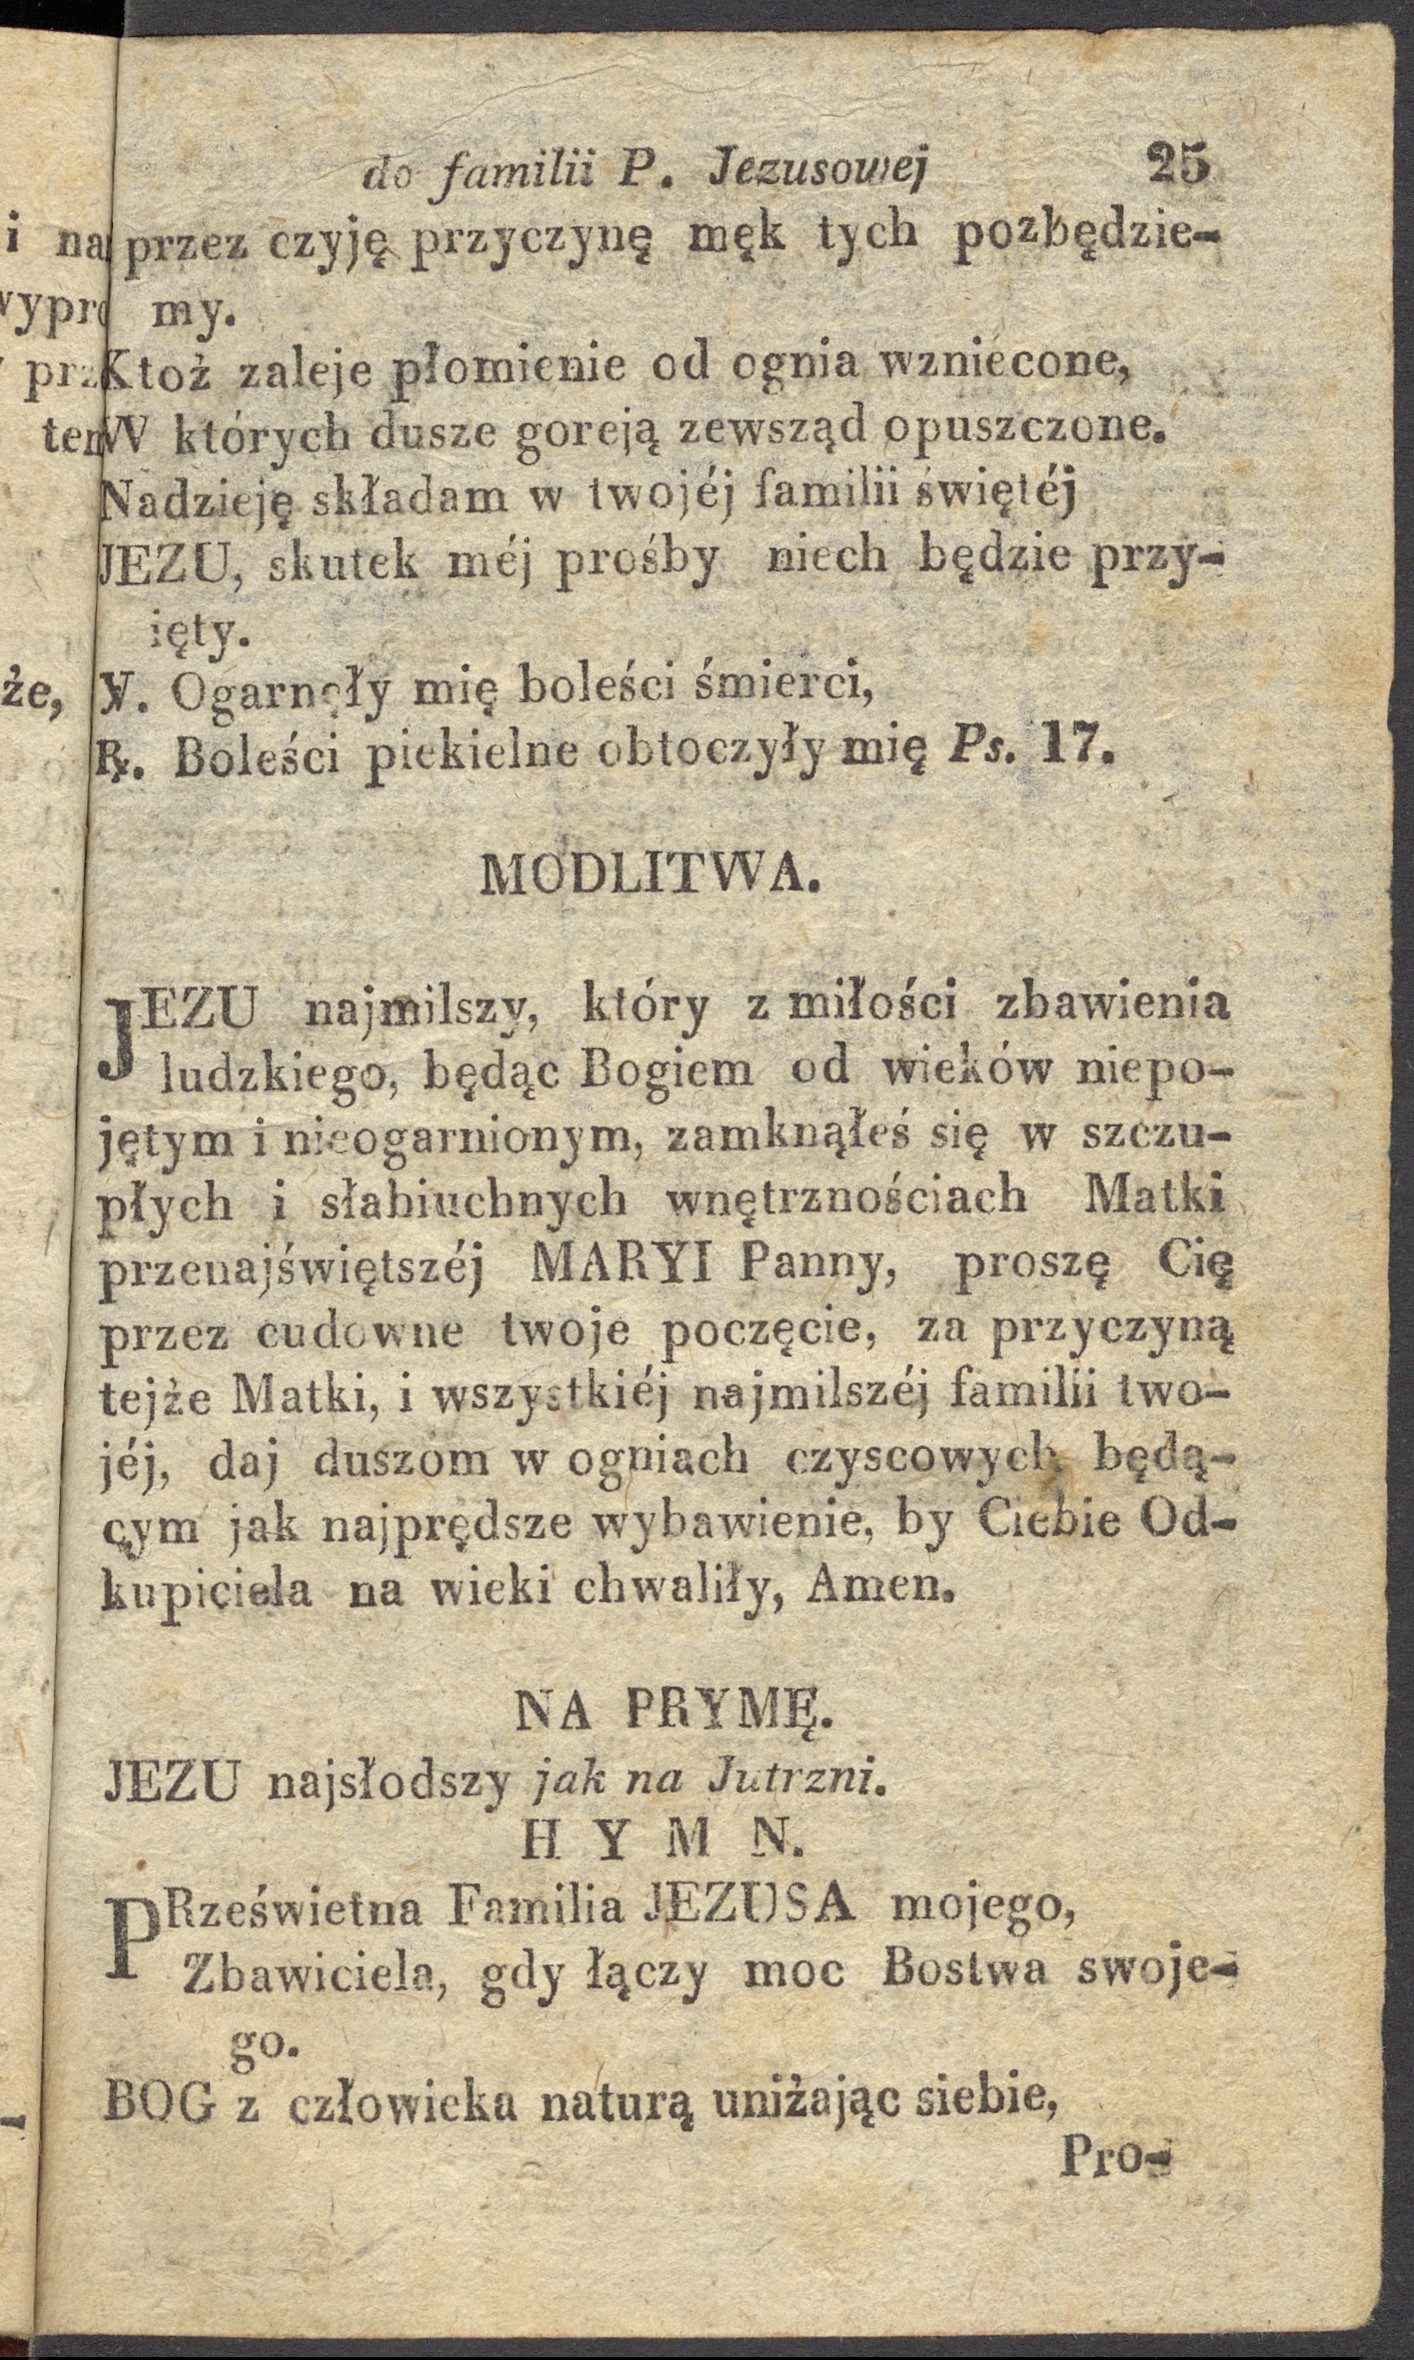 do familii P. Jezusowej 25
przez czyję przyczynę męk tych pozbędzie-
my.
Ktoż zaleje płomienie od ognia wzniecone,
W których dusze goreją zewsząd opuszczone.
Nadzieję składam w twojéj familii świętéj
JEZU, skutek méj prośby niech będzie przy-
ięty.
℣. Ogarnęły mię boleści śmierci,
℟. Boleści piekielne obtoczyły mię Ps. 17.
MODLITWA.
JEZU najmilszy, który z miłości zbawienia
ludzkiego, będąc Bogiem od wieków niepo-
jętym i nieogarnionym, zamknąłeś się w szczu-
płych i słabiuchnych wnętrznościach Matki
przenajświętszéj MARYI Panny, proszę Cię
przez cudowne twoje poczęcie, za przyczyną
tejże Matki, i wszystkiéj najmilszéj familii two-
jéj, daj duszom w ogniach czyscowych będą-
cym jak najprędsze wybawienie, by Ciebie Od-
kupiciela na wieki chwaliły, Amen.
NA PRYMĘ.
JEZU najsłodszy jak na Jutrzni.
H Y M N.
PRześwietna Familia JEZUSA mojego,
Zbawiciela, gdy łączy moc Bostwa swoje-
go.
BOG z człowieka naturą uniżając siebie,
Pro-